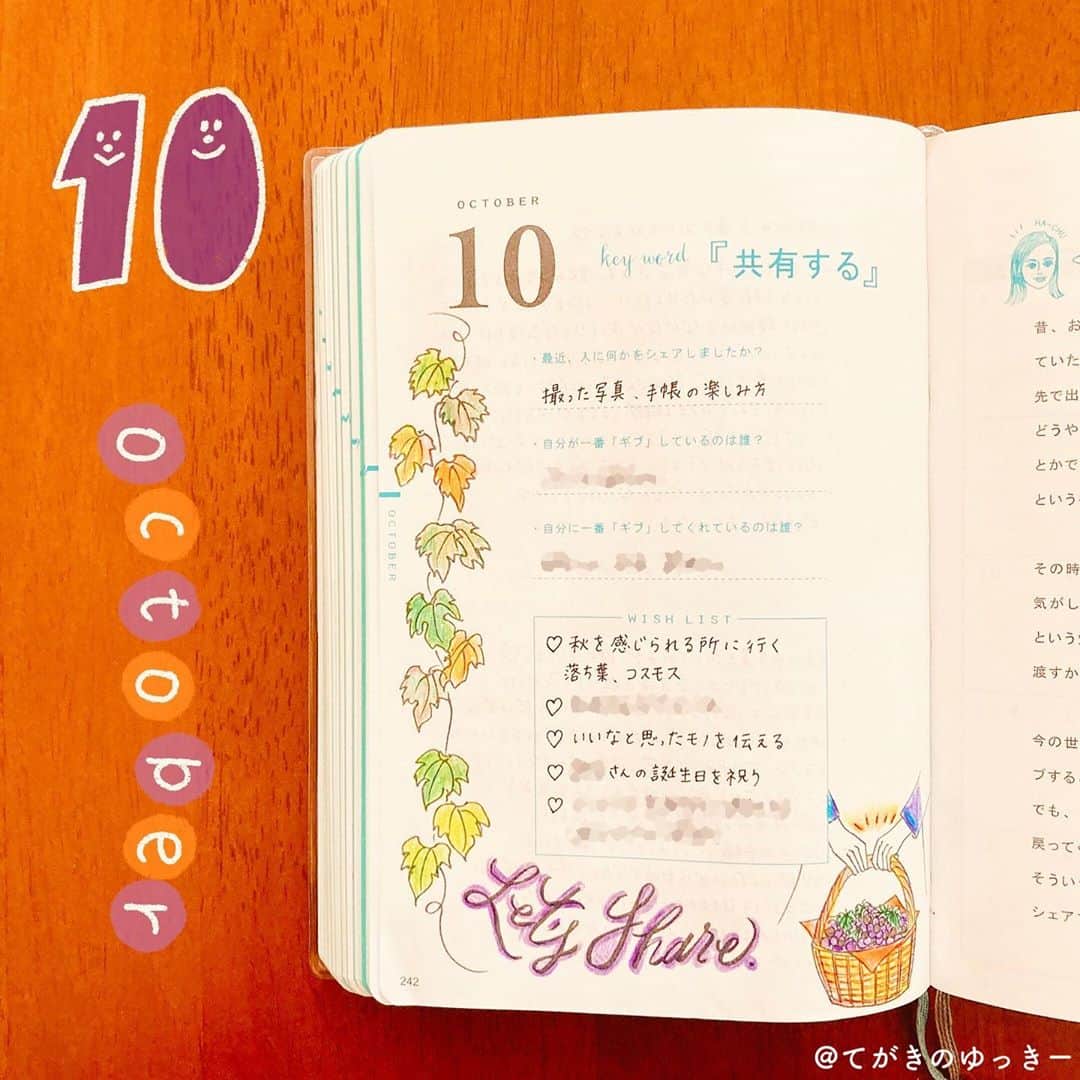 10
october
OCTOBER
10
key word 『共有する』
・最近、人に何かをシェアしましたか？
撮った写真、手帳の楽しみ方
・自分が一番「ギブ」しているのは誰？
・自分に一番「ギブ」してくれているのは誰？
OCTOBER
WISH LIST
♡ 秋を感じられる所に行く
落ち葉、コスモス
♡
♡ いいなと思ったモノを伝える
♡ さんの誕生日を祝う
♡
Let's Share.
242
HA-CHU
昔、お
ていた
先で出
どうや
とかで
という
その時
気がし
という
渡すか
今の世
ブする
でも、
戻って
そうい
シェア
@てがきのゆっきー